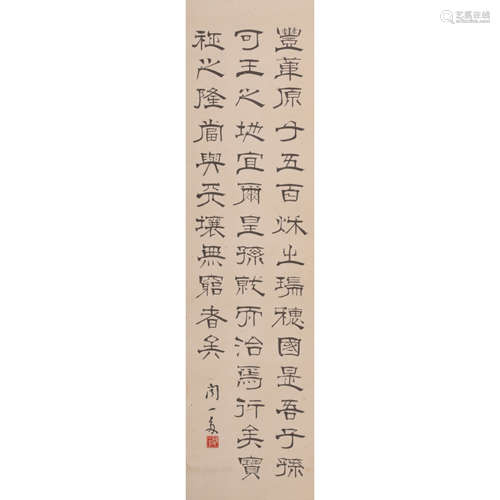 豐葦原千五百秋之瑞穗國是吾子孫
可王之地宜爾皇孫就而治焉行矣寶
祚之隆當與天壤無窮者矣
聞一多
艺狐在线